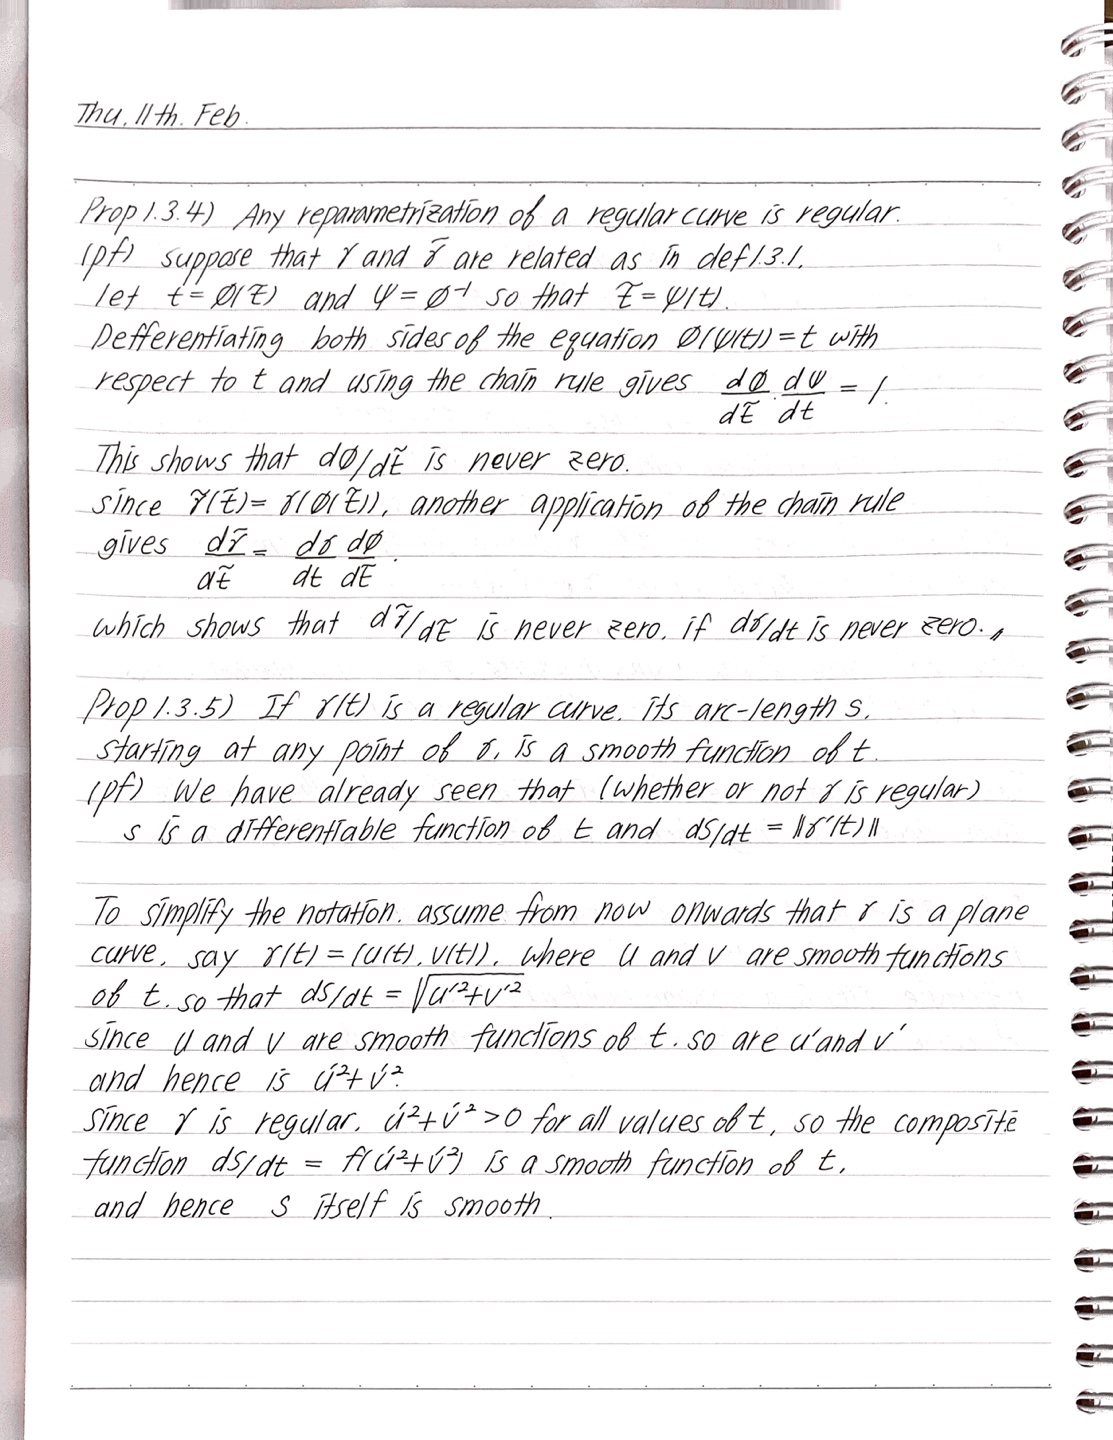 Thu. 11th. Feb.
Prop 1.3.4) Any reparametrization of a regular curve is regular.
(pf) suppose that γ and γ̃ are related as in def 1.3.1.
let t = Ø(t̃) and Ψ = Ø⁻¹ so that t̃ = Ψ(t).
Defferentiating both sides of the equation Ø(Ψ(t)) = t with
respect to t and using the chain rule gives dØ/dt̃ · dΨ/dt = 1.
This shows that dØ/dt̃ is never zero.
since γ̃(t̃) = γ(Ø(t̃)), another application of the chain rule
gives dγ̃/dt̃ = dγ/dt dØ/dt̃.
which shows that dγ̃/dt̃ is never zero. if dγ/dt is never zero.
Prop 1.3.5) If γ(t) is a regular curve. its arc-length s,
starting at any point of γ, is a smooth function of t.
(pf) We have already seen that (whether or not γ is regular)
s is a differentiable function of t and ds/dt = ‖γ'(t)‖
To simplify the notation. assume from now onwards that γ is a plane
curve, say γ(t) = (u(t), v(t)), where u and v are smooth functions
of t. so that ds/dt = √(u'²+v'²)
since u and v are smooth functions of t. so are u' and v'
and hence is u̇²+v̇².
since γ is regular. u̇²+v̇² >0 for all values of t, so the composite
function ds/dt = f(u̇²+v̇²) is a smooth function of t,
and hence s itself is smooth.